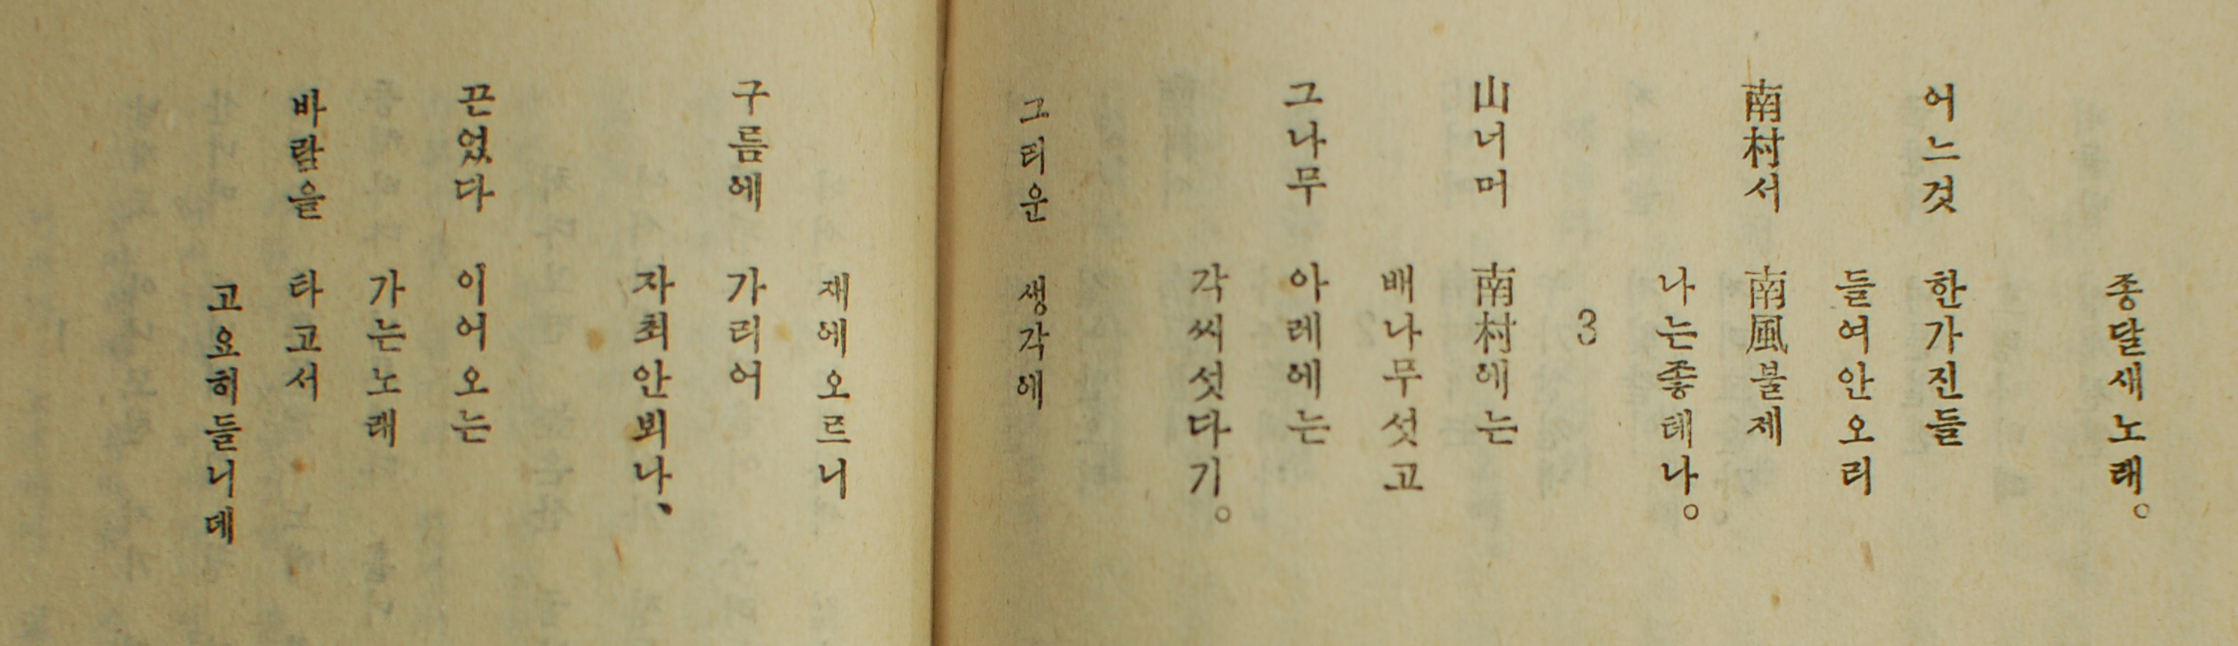 종달새노래。
어느것 한가진들
들여안오리
南村서 南風불제
나는좋데나。
3
山너머 南村에는
배나무섯고
그나무 아레에는
각씨섯다기。
그리운 생각에
재에오르니
구름에 가리어
자최안뵈나、
끈었다 이어오는
가는노래
바람을 타고서
고요히들니데